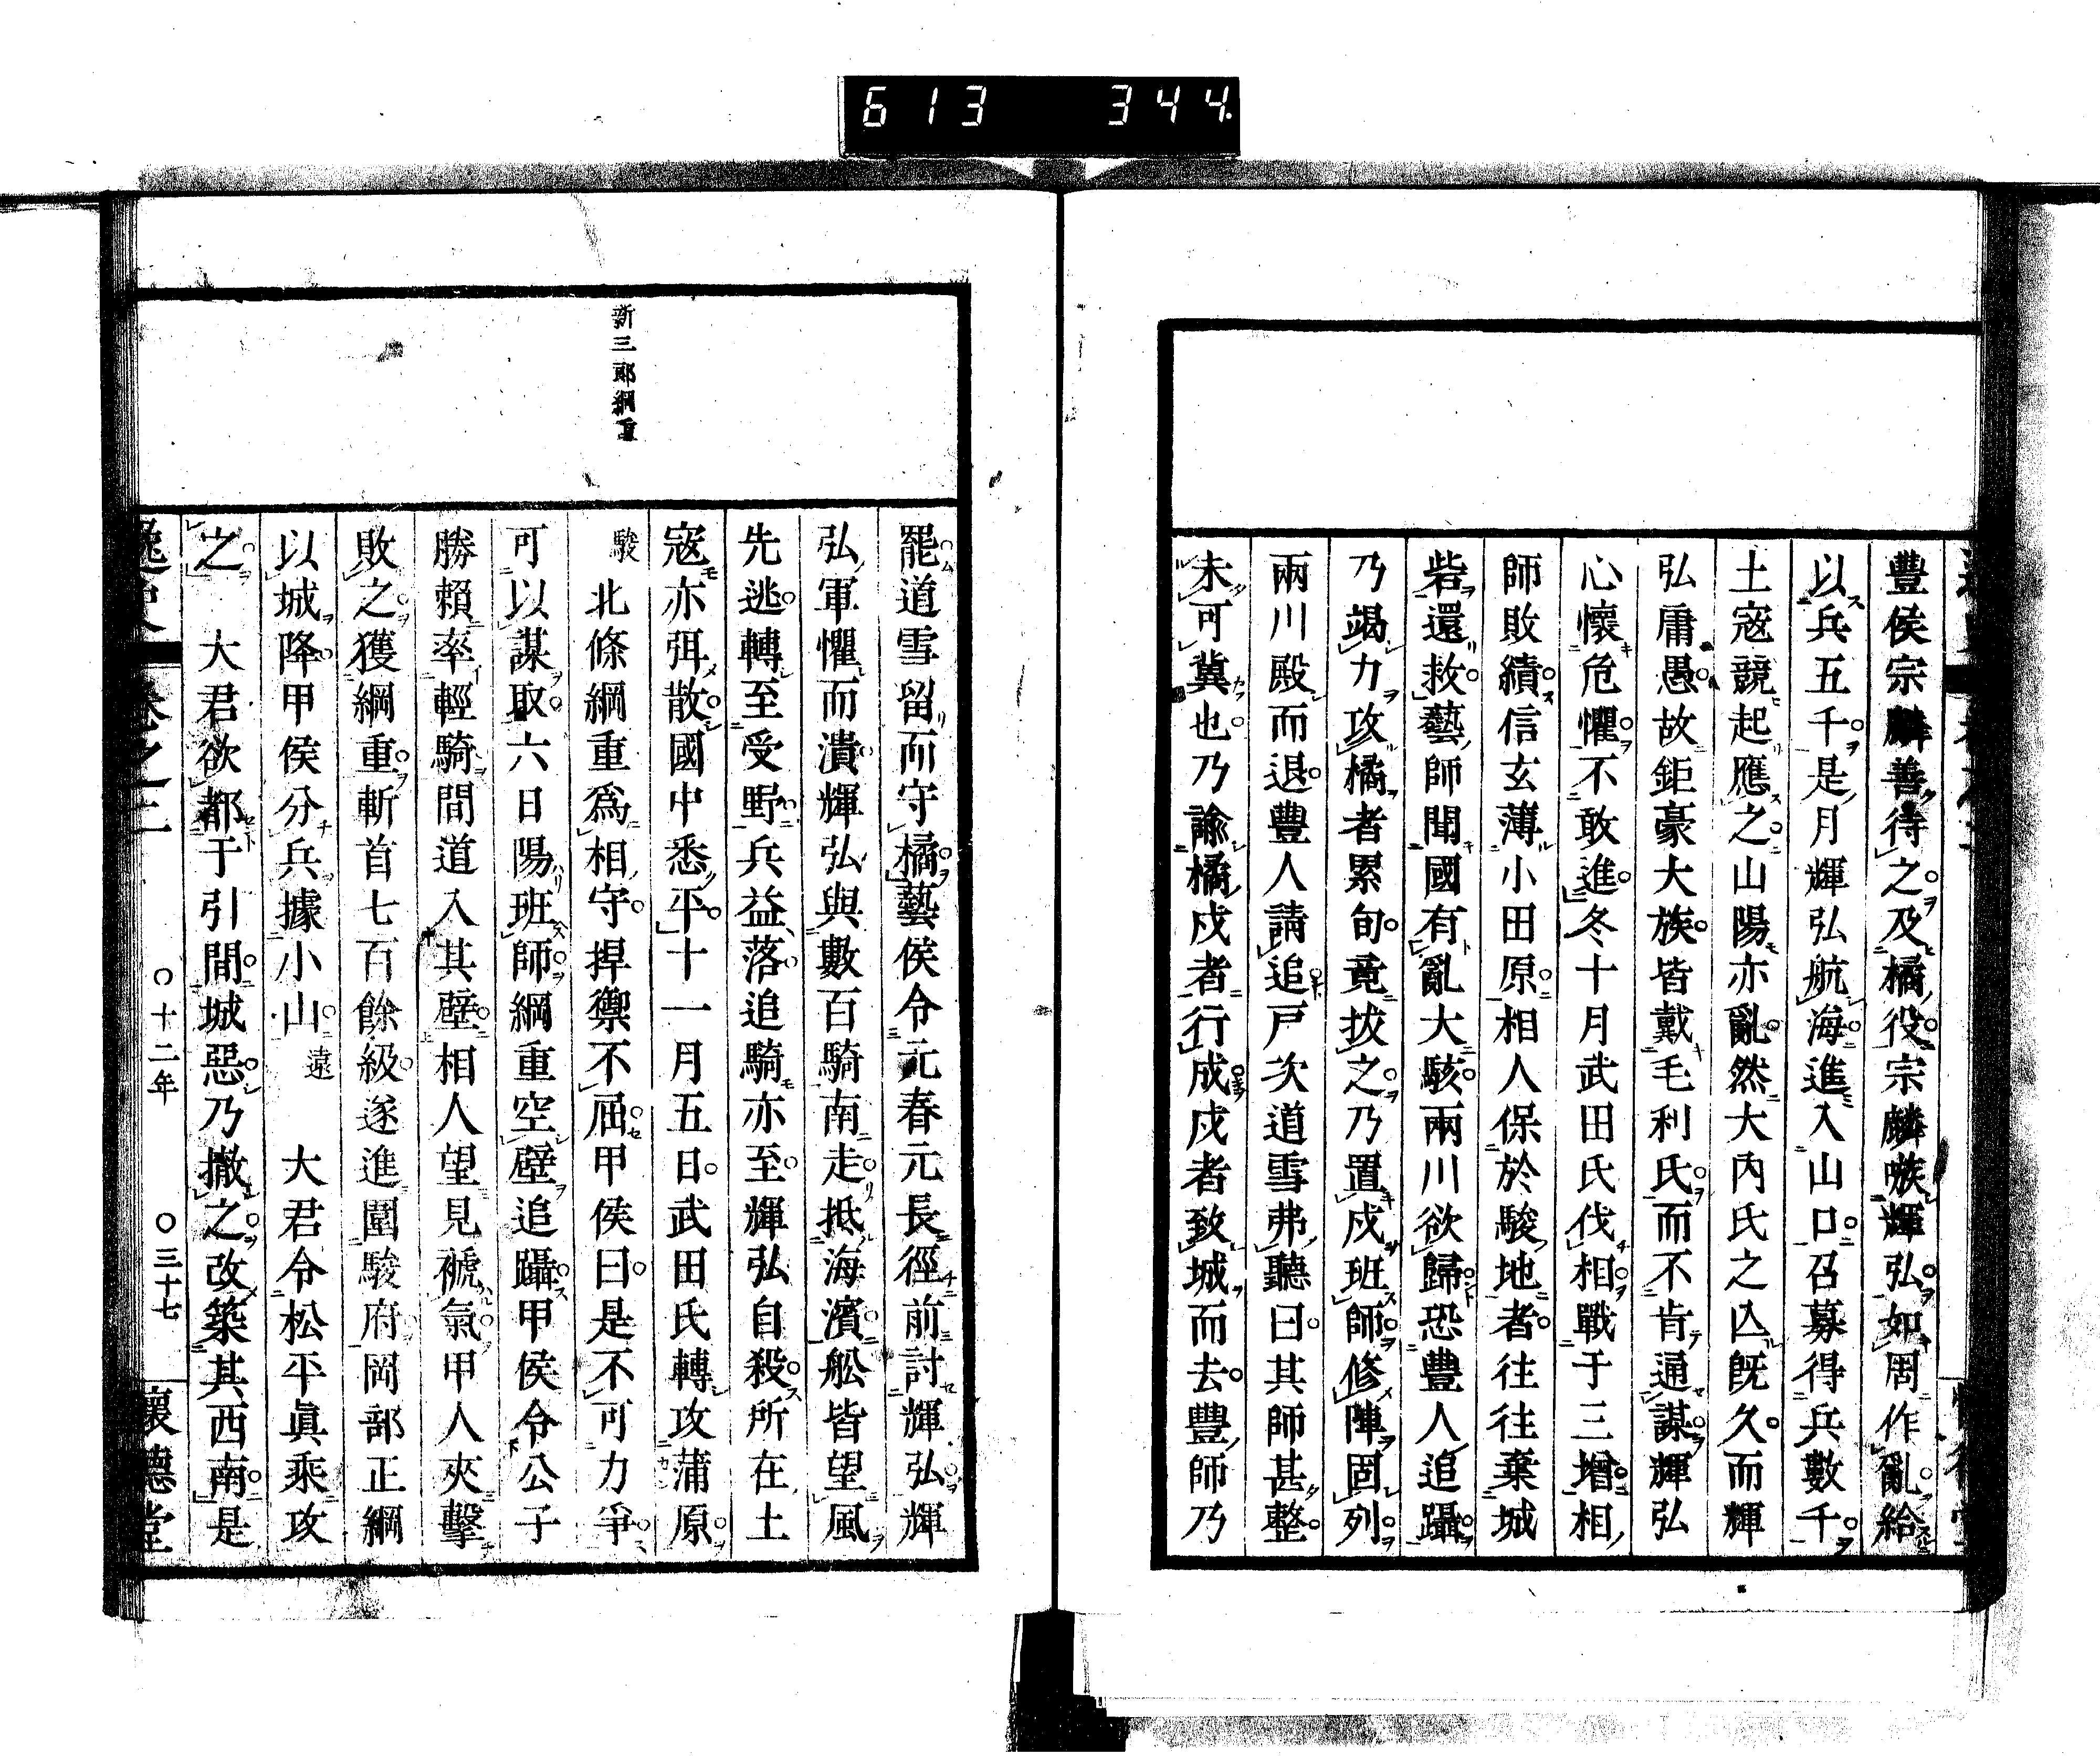 613 344.
豊侯宗麟善待之及橘役宗麟嗾輝弘如周作亂給
以兵五千是月輝弘航海進入山口召募得兵數千
土寇競起應之山陽亦亂然大內氏之亾既久而輝
弘庸愚故鉅豪大族皆戴毛利氏而不肯通謀輝弘
心懷危懼不敢進冬十月武田氏伐相戰于三增相
師敗績信玄薄小田原相人保於駿地者往往棄城
砦還救藝師聞國有亂大駭兩川欲歸恐豊人追躡
乃竭力攻橘者累旬竟拔之乃置戍班師修陣固列
兩川殿而退豊人請追戸次道雪弗聽曰其師甚整
未可冀也乃諭橘戍者行成戍者致城而去豊師乃
新三郎綱重
罷道雪留而守橘藝侯令元春元長徑前討輝弘輝
弘軍懼而潰輝弘與數百騎南走抵海濱舩皆望風
先逃轉至受野兵益落追騎亦至輝弘自殺所在土
寇亦弭散國中悉平十一月五日武田氏轉攻蒲原
駿北條綱重爲相守捍禦不屈甲侯曰是不可力爭
可以謀取六日陽班師綱重空壁追躡甲侯令公子
勝賴率輕騎間道入其壁相人望見褫氣甲人夾擊
敗之獲綱重斬首七百餘級遂進圍駿府岡部正綱
以城降甲侯分兵據小山遠 大君令松平眞乘攻
之 大君欲都于引間城惡乃撤之改築其西南是
逸史 卷之二 ○十二年 ○三十七 懷德堂